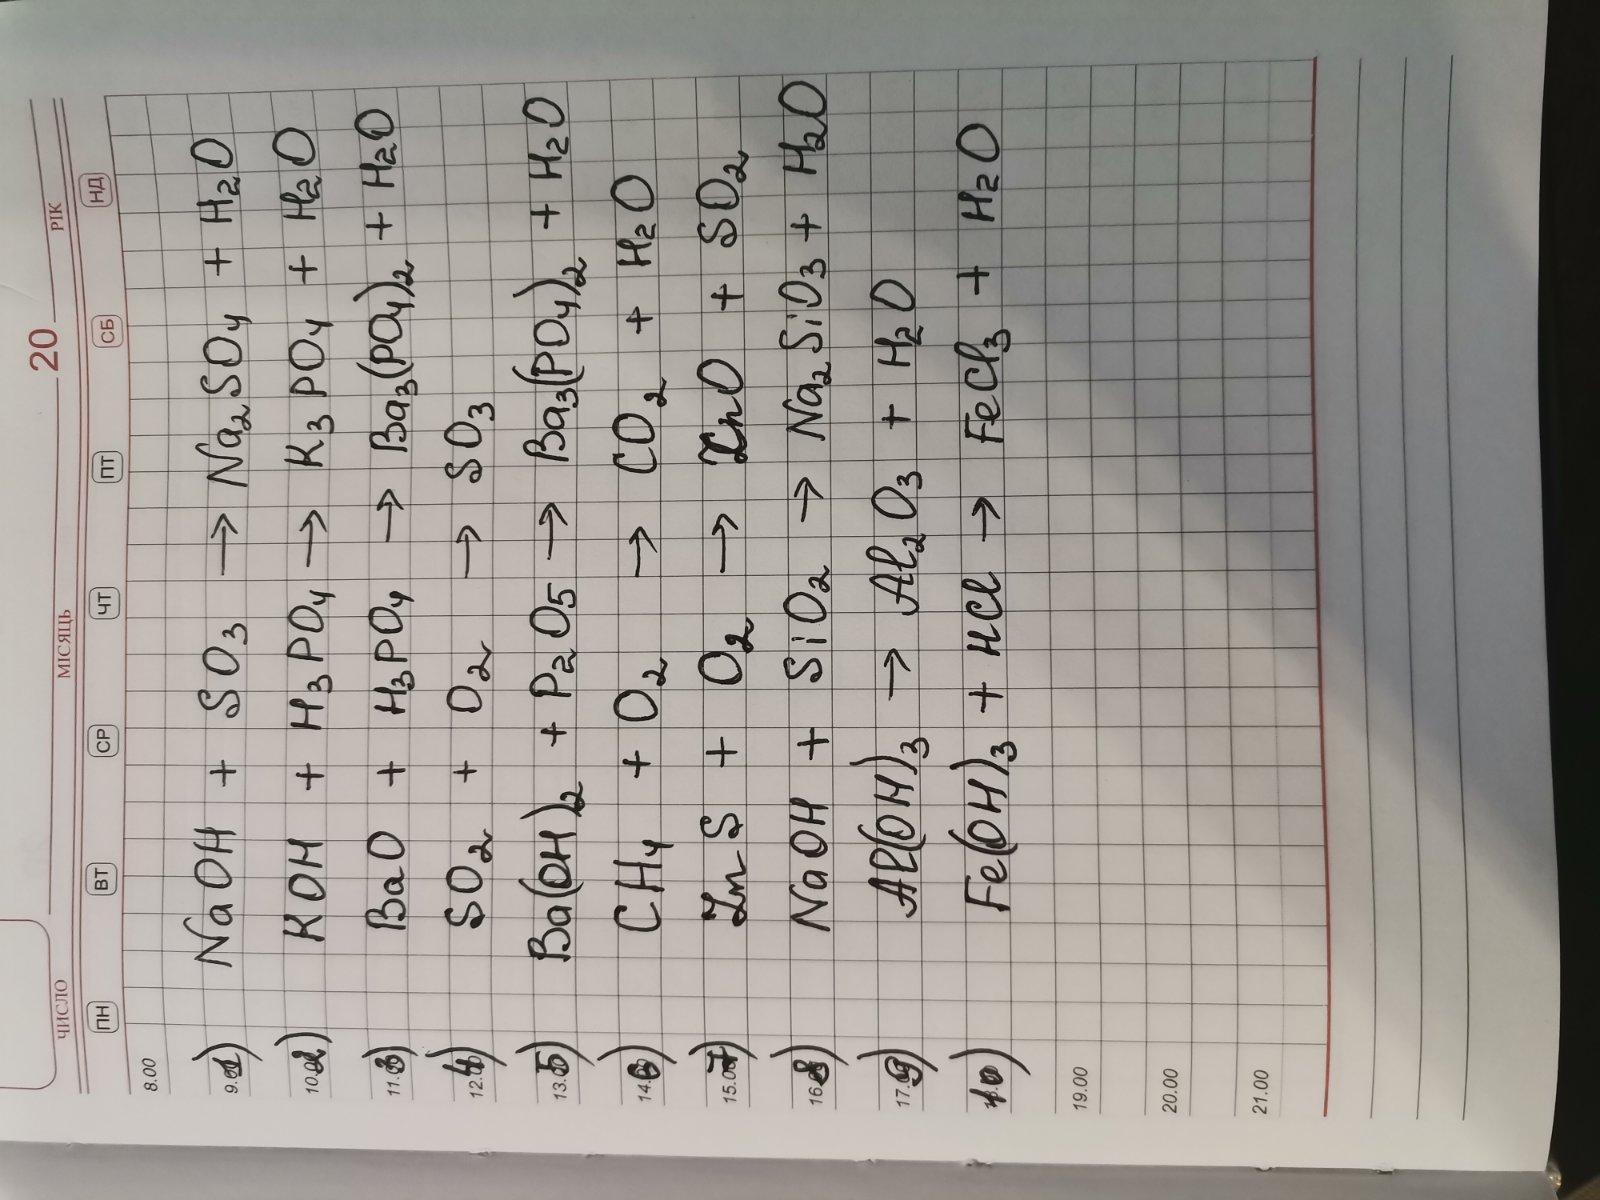 ЧИСЛО МІСЯЦЬ 20 РІК
ПН ВТ СР ЧТ ПТ СБ НД
8.00
1) NaOH + SO₃ → Na₂SO₄ + H₂O
2) KOH + H₃PO₄ → K₃PO₄ + H₂O
3) BaO + H₃PO₄ → Ba₃(PO₄)₂ + H₂O
4) SO₂ + O₂ → SO₃
5) Ba(OH)₂ + P₂O₅ → Ba₃(PO₄)₂ + H₂O
6) CH₄ + O₂ → CO₂ + H₂O
7) ZnS + O₂ → ZnO + SO₂
8) NaOH + SiO₂ → Na₂SiO₃ + H₂O
9) Al(OH)₃ → Al₂O₃ + H₂O
10) Fe(OH)₃ + HCl → FeCl₃ + H₂O
19.00
20.00
21.00